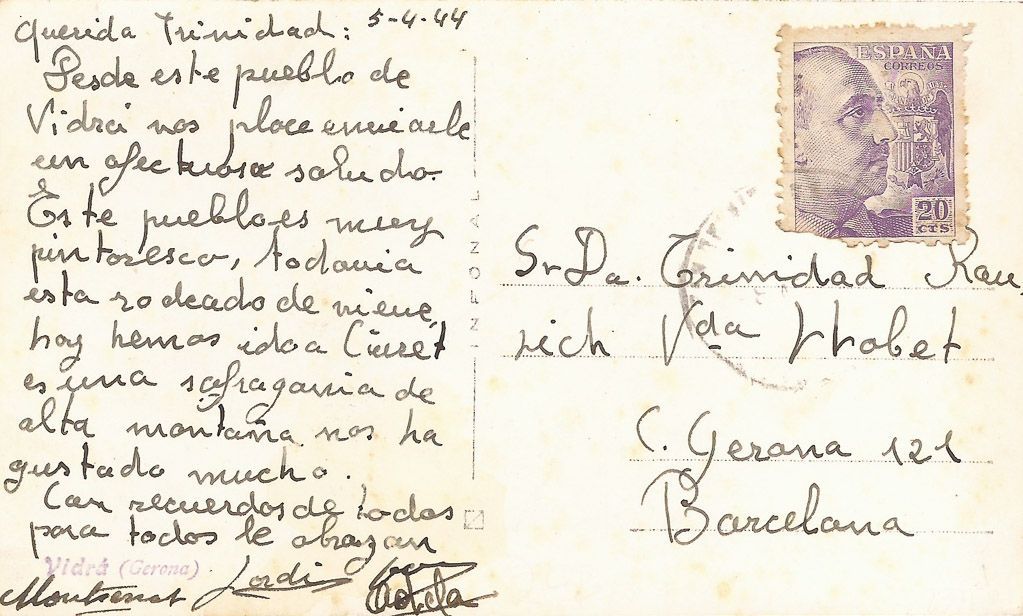 5-4-44
Querida Trinidad:
Desde este pueblo de
Vidrá nos place enviarle
un afectuoso saludo.
Este pueblo es muy
pintoresco, todavia
esta rodeado de nieve,
hoy hemos ido a Ciuret
es una sufragania de
alta montaña, nos ha
gustado mucho.
Con recuerdos de todos
para todos le abrazan
Montserrat Jordi
Vidrá (Gerona)
ESPAÑA
CORREOS
20
CTS
Sr Da. Trinidad Rau
rich Vda Llobet
C. Gerona 121
Barcelona